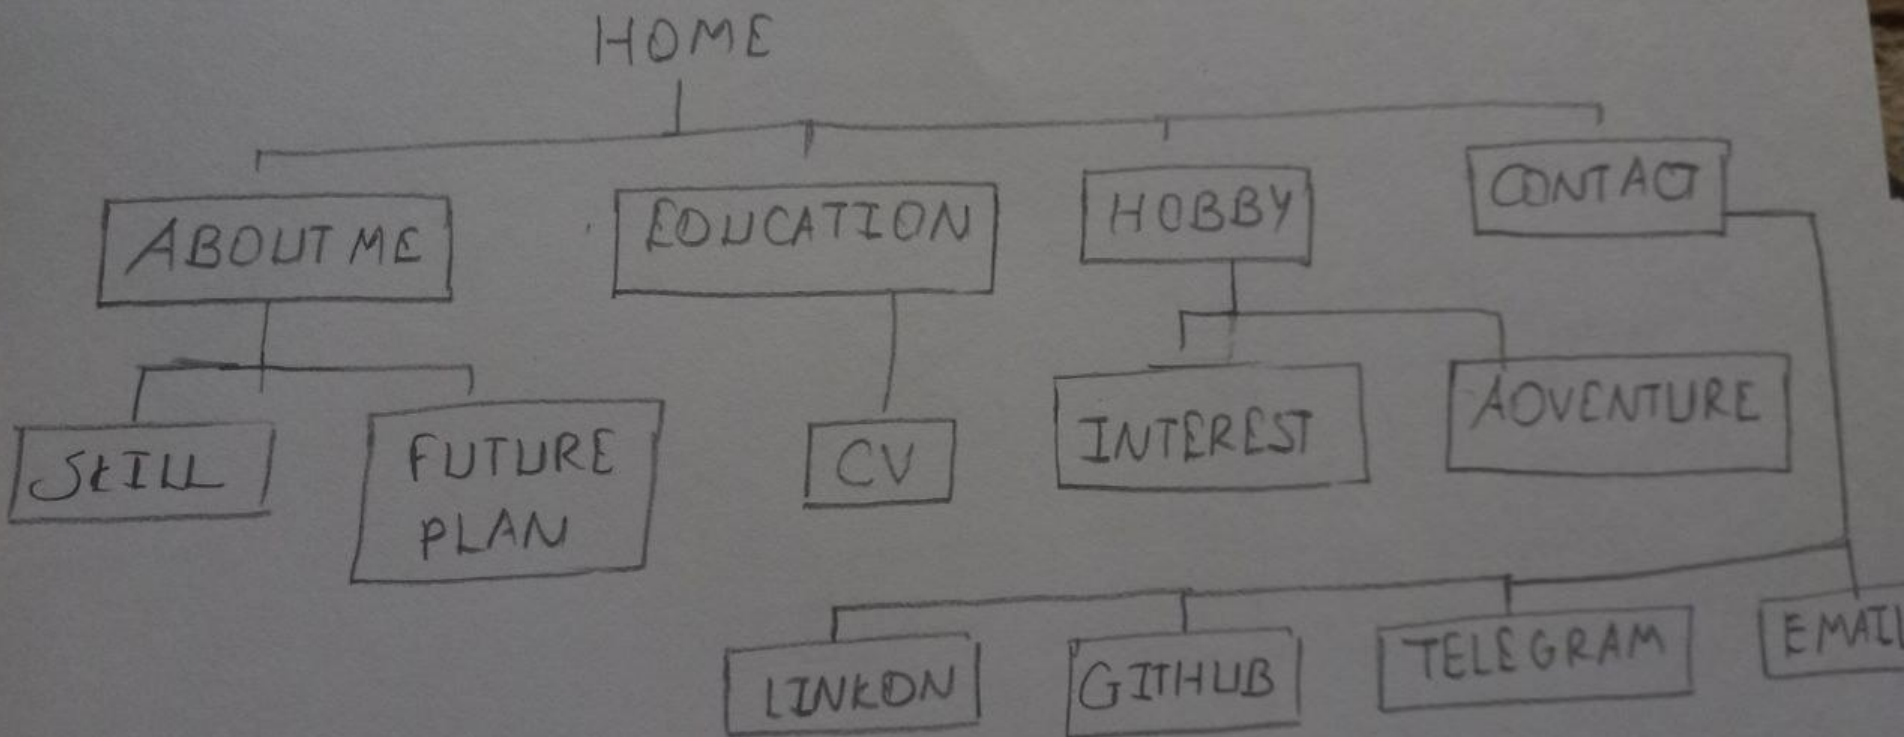 HOME
ABOUT ME
EDUCATION
HOBBY
CONTACT
SKILL
FUTURE
PLAN
CV
INTEREST
ADVENTURE
LINKDN
GITHUB
TELEGRAM
EMAIL